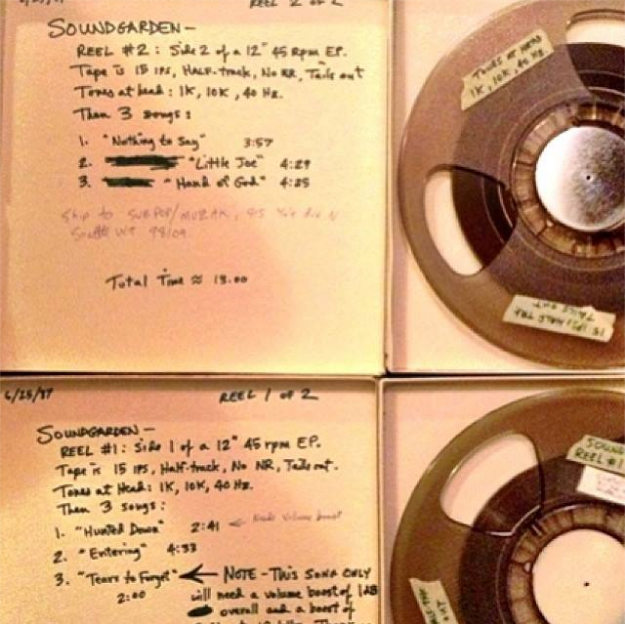 REEL 2 OF 2
SOUNDGARDEN—
REEL #2: Side 2 of a 12" 45 Rpm EP.
Tape is 15 IPS, HALF-track, No NR, Tails out
Tones at head: 1K, 10K, 40 Hz.
Then 3 songs:
1. "Nothing to Say" 3:57
2. "Little Joe" 4:29
3. "Hand of God" 4:25
Ship to SUB POP/MUZAK,
Seattle WA 98109
Total Time ≈ 13:00
TONES AT HEAD
1K, 10K, 40 Hz.
15 IPS, HALF TRK
TAILS OUT
6/25/87 REEL 1 OF 2
SOUNDGARDEN—
REEL #1: Side 1 of a 12" 45 rpm EP.
Tape is 15 IPS, Half-track, No NR, Tails out.
Tones at Head: 1K, 10K, 40 Hz.
Then 3 songs:
1. "Hunted Down" 2:41 ← Needs volume boost
2. "Entering" 4:33
3. "Tears to Forget" ← NOTE - THIS SONG ONLY
2:00 will need a volume boost of 1dB
overall and a boost of
SOUND
REEL #1